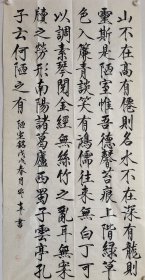 山不在高有僊則名水不在深有龍則
靈斯是陋室惟吾德馨苔痕上階綠草
色入簾青談笑有鴻儒往來無白丁可
以調素琴閱金經無絲竹之亂耳無案
牘之勞形南陽諸葛廬西蜀子雲亭孔
子云何陋之有 陋室銘 戊戌春月 書